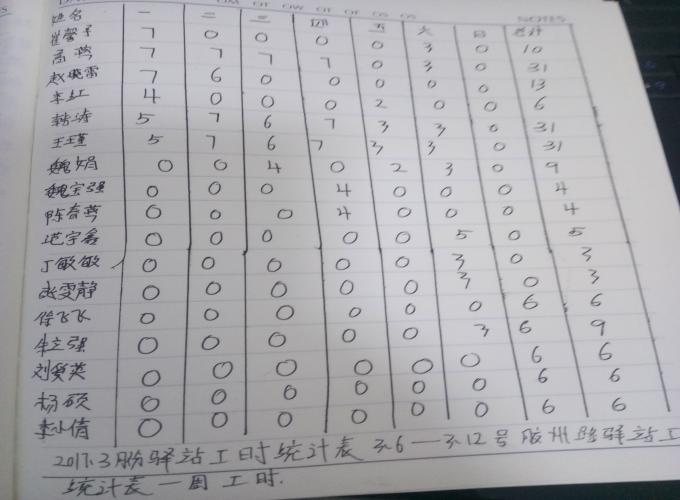 NOTES
姓名 一 二 三 四 五 六 日 总计
崔馨予 7 0 0 0 0 3 0 10
高 7 7 7 7 0 3 0 31
赵晓雷 7 6 0 0 0 0 0 13
李红 4 0 0 0 2 0 0 6
韩涛 5 7 6 7 3 3 0 31
王瑾 5 7 6 7 3 3 0 31
魏娟 0 0 4 0 2 3 0 9
魏宝强 0 0 0 4 0 0 0 4
陈春燕 0 0 0 4 0 0 0 4
范宇鑫 0 0 0 0 0 5 0 5
丁敏敏 0 0 0 0 0 3 0 3
张雯静 0 0 0 0 0 3 0 3
徐飞飞 0 0 0 0 0 0 6 6
牟立强 0 0 0 0 0 3 6 9
刘爱英 0 0 0 0 0 0 6 6
杨硕 0 0 0 0 0 0 6 6
李小倩 0 0 0 0 0 0 6 6
2017.3月份驿站工时统计表 3.6—3.12号 胶州路驿站工
统计表一周工时.